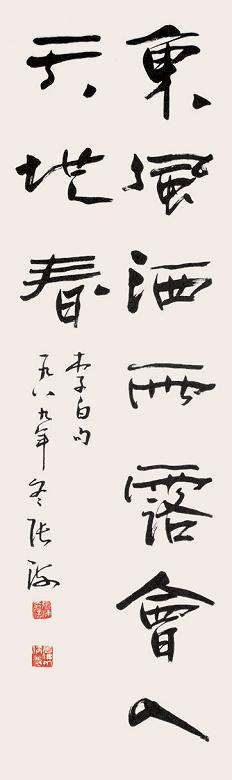 東風洒雨露會入
天地春
李白句
一九八九年冬張海